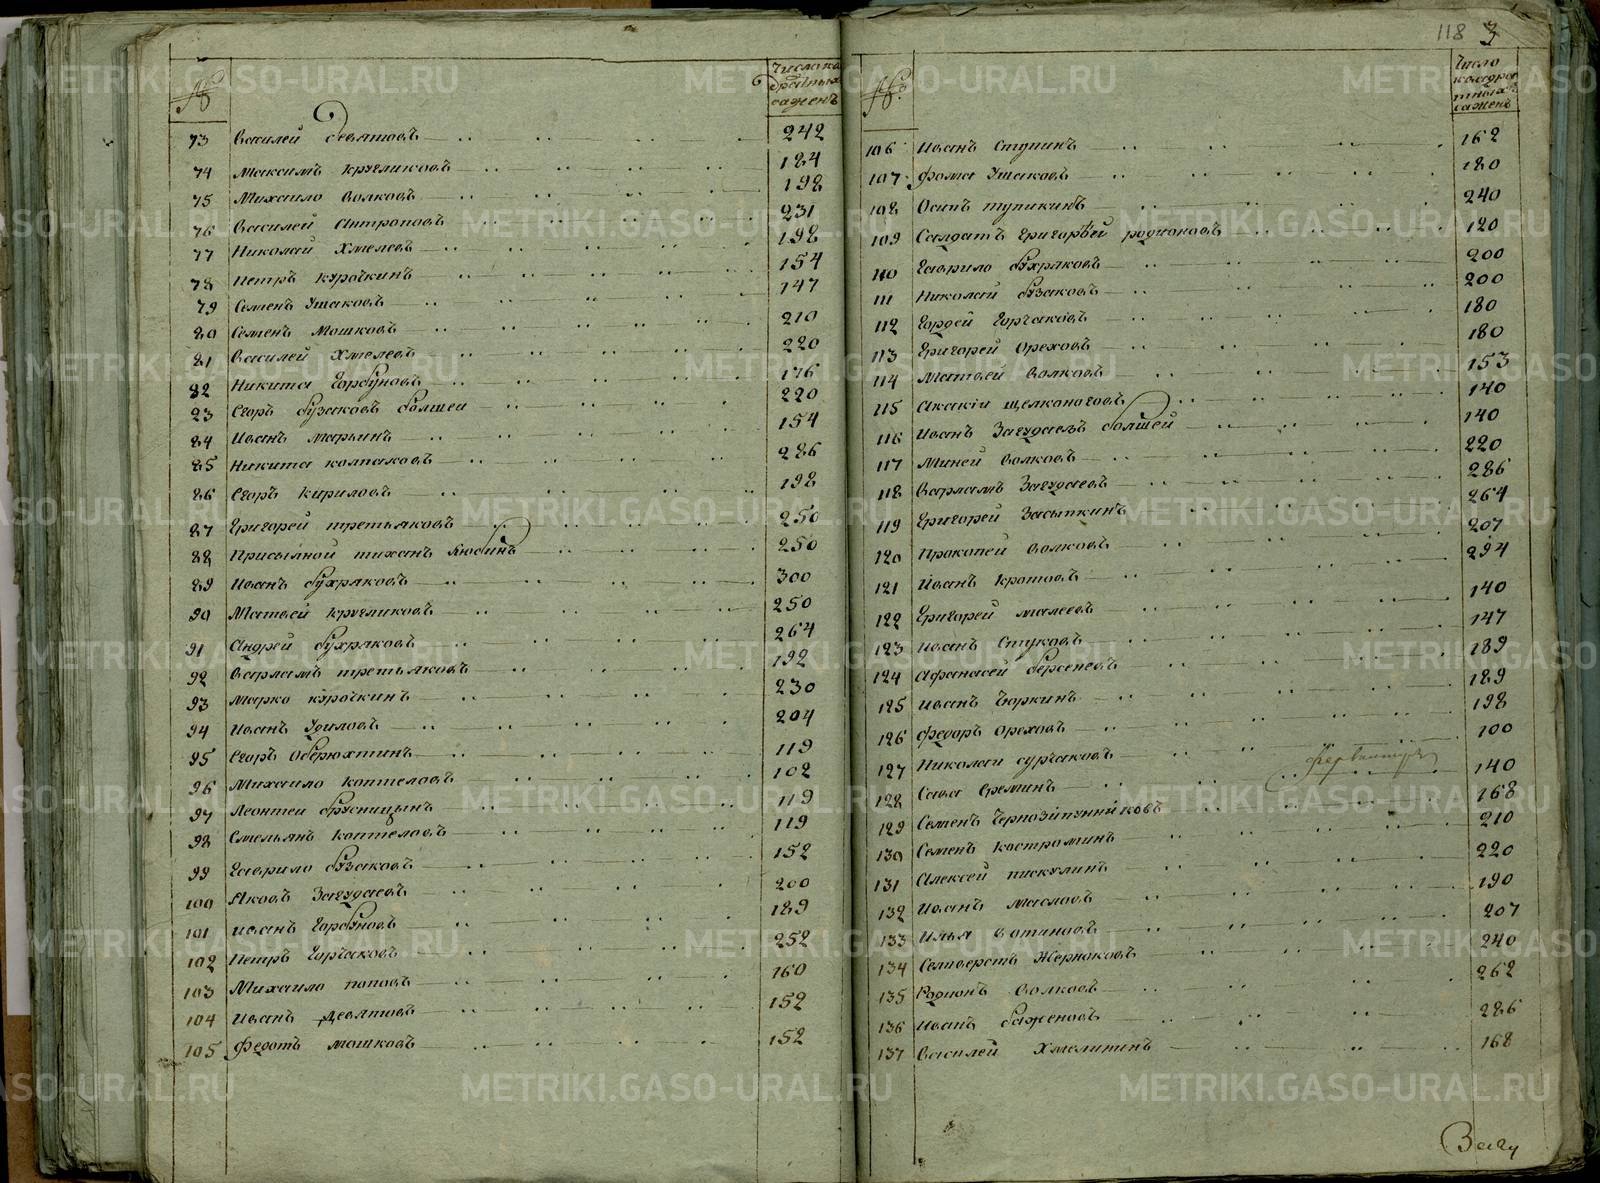 118 3
№ Число квадратныхъ саженъ
73 Василей Девятовъ 242
74 Максимъ Кругликовъ 184
75 Михаило Волковъ 198
76 Василей Антроповъ 231
77 Николай Хмелевъ 198
78 Петръ Курочкинъ 154
79 Семенъ Ушаковъ 147
80 Семенъ Мошковъ 210
81 Василей Хмелевъ 220
82 Никита Горбуновъ 176
83 Егоръ Бузаковъ болшей 220
84 Иванъ Марьинъ 154
85 Никита Колпаковъ 286
86 Егоръ Кириловъ 198
87 Григорей Третьяковъ 250
88 Присыпной Тиханъ 250
89 Иванъ Бухряковъ 300
90 Матвей Кругликовъ 250
91 Андрей Бухряковъ 264
92 Варламъ Третьяковъ 192
93 Марко Курочкинъ 230
94 Иванъ Удиловъ 204
95 Егоръ Оберюхтинъ 119
96 Михаило Коптеловъ 102
97 Леонтеи Брусницынъ 119
98 Емельянъ Коптеловъ 119
99 Гаврило Бузаковъ 152
100 Яковъ Загудаевъ 200
101 Иванъ Горбуновъ 189
102 Петръ Горчаковъ 252
103 Михаило Поповъ 160
104 Иванъ Девятовъ 152
105 Федотъ Мошковъ 152
№ Число квадратныхъ саженъ
106 Иванъ Ступинъ 162
107 Фома Ушаковъ 180
108 Осипъ Тупикинъ 240
109 Салдатъ Григорьей Родионовъ 120
110 Гаврило Бухряковъ 200
111 Николай Бузаковъ 200
112 Гордей Горчаковъ 180
113 Григорей Ореховъ 180
114 Матвей Волковъ 153
115 Акакiи Щелконоговъ 140
116 Иванъ Загудаевъ болшей 140
117 Миней Волковъ 220
118 Варламъ Загудаевъ 286
119 Григорей Засыпкинъ 264
120 Прокопей Волковъ 207
121 Иванъ Кротовъ 294
122 Григорей Малеевъ 140
123 Иванъ Стуковъ 147
124 Афанасей Берсеневъ 189
125 Иванъ Чюркинъ 189
126 Федоръ Ореховъ 198
127 Николаи Сурчаковъ 100
128 Сава Ереминъ 140
129 Семенъ 168
130 Семенъ Костроминъ 210
131 Алексей Пискулинъ 220
132 Иванъ Масловъ 190
133 Илья Вотиновъ 207
134 Селиверстъ Жерноковъ 240
135 Родионъ Волковъ 262
136 Иванъ Баженовъ 286
137 Василей Хмелининъ 168
METRIKI.GASO-URAL.RU